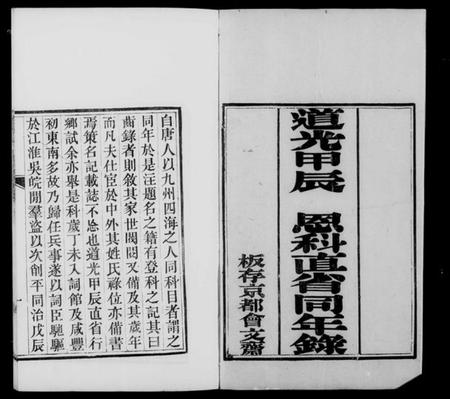 道光甲辰恩科直省同年錄
板存京都會文齋
自唐人以九州四海之人同科目者謂之
同年於是注題名之籍有登科之記其曰
齒錄者則敘其家世閥閱又備及其歲年
而凡夫仕宦於中外其姓氏祿位亦備書
焉策名記載誌不忘也道光甲辰直省行
鄉試余亦舉是科歲丁未入詞館及咸豐
初東南多故乃歸任兵事遂以詞臣驰驅
於江淮吳皖閒羣盜以次削平同治戊辰